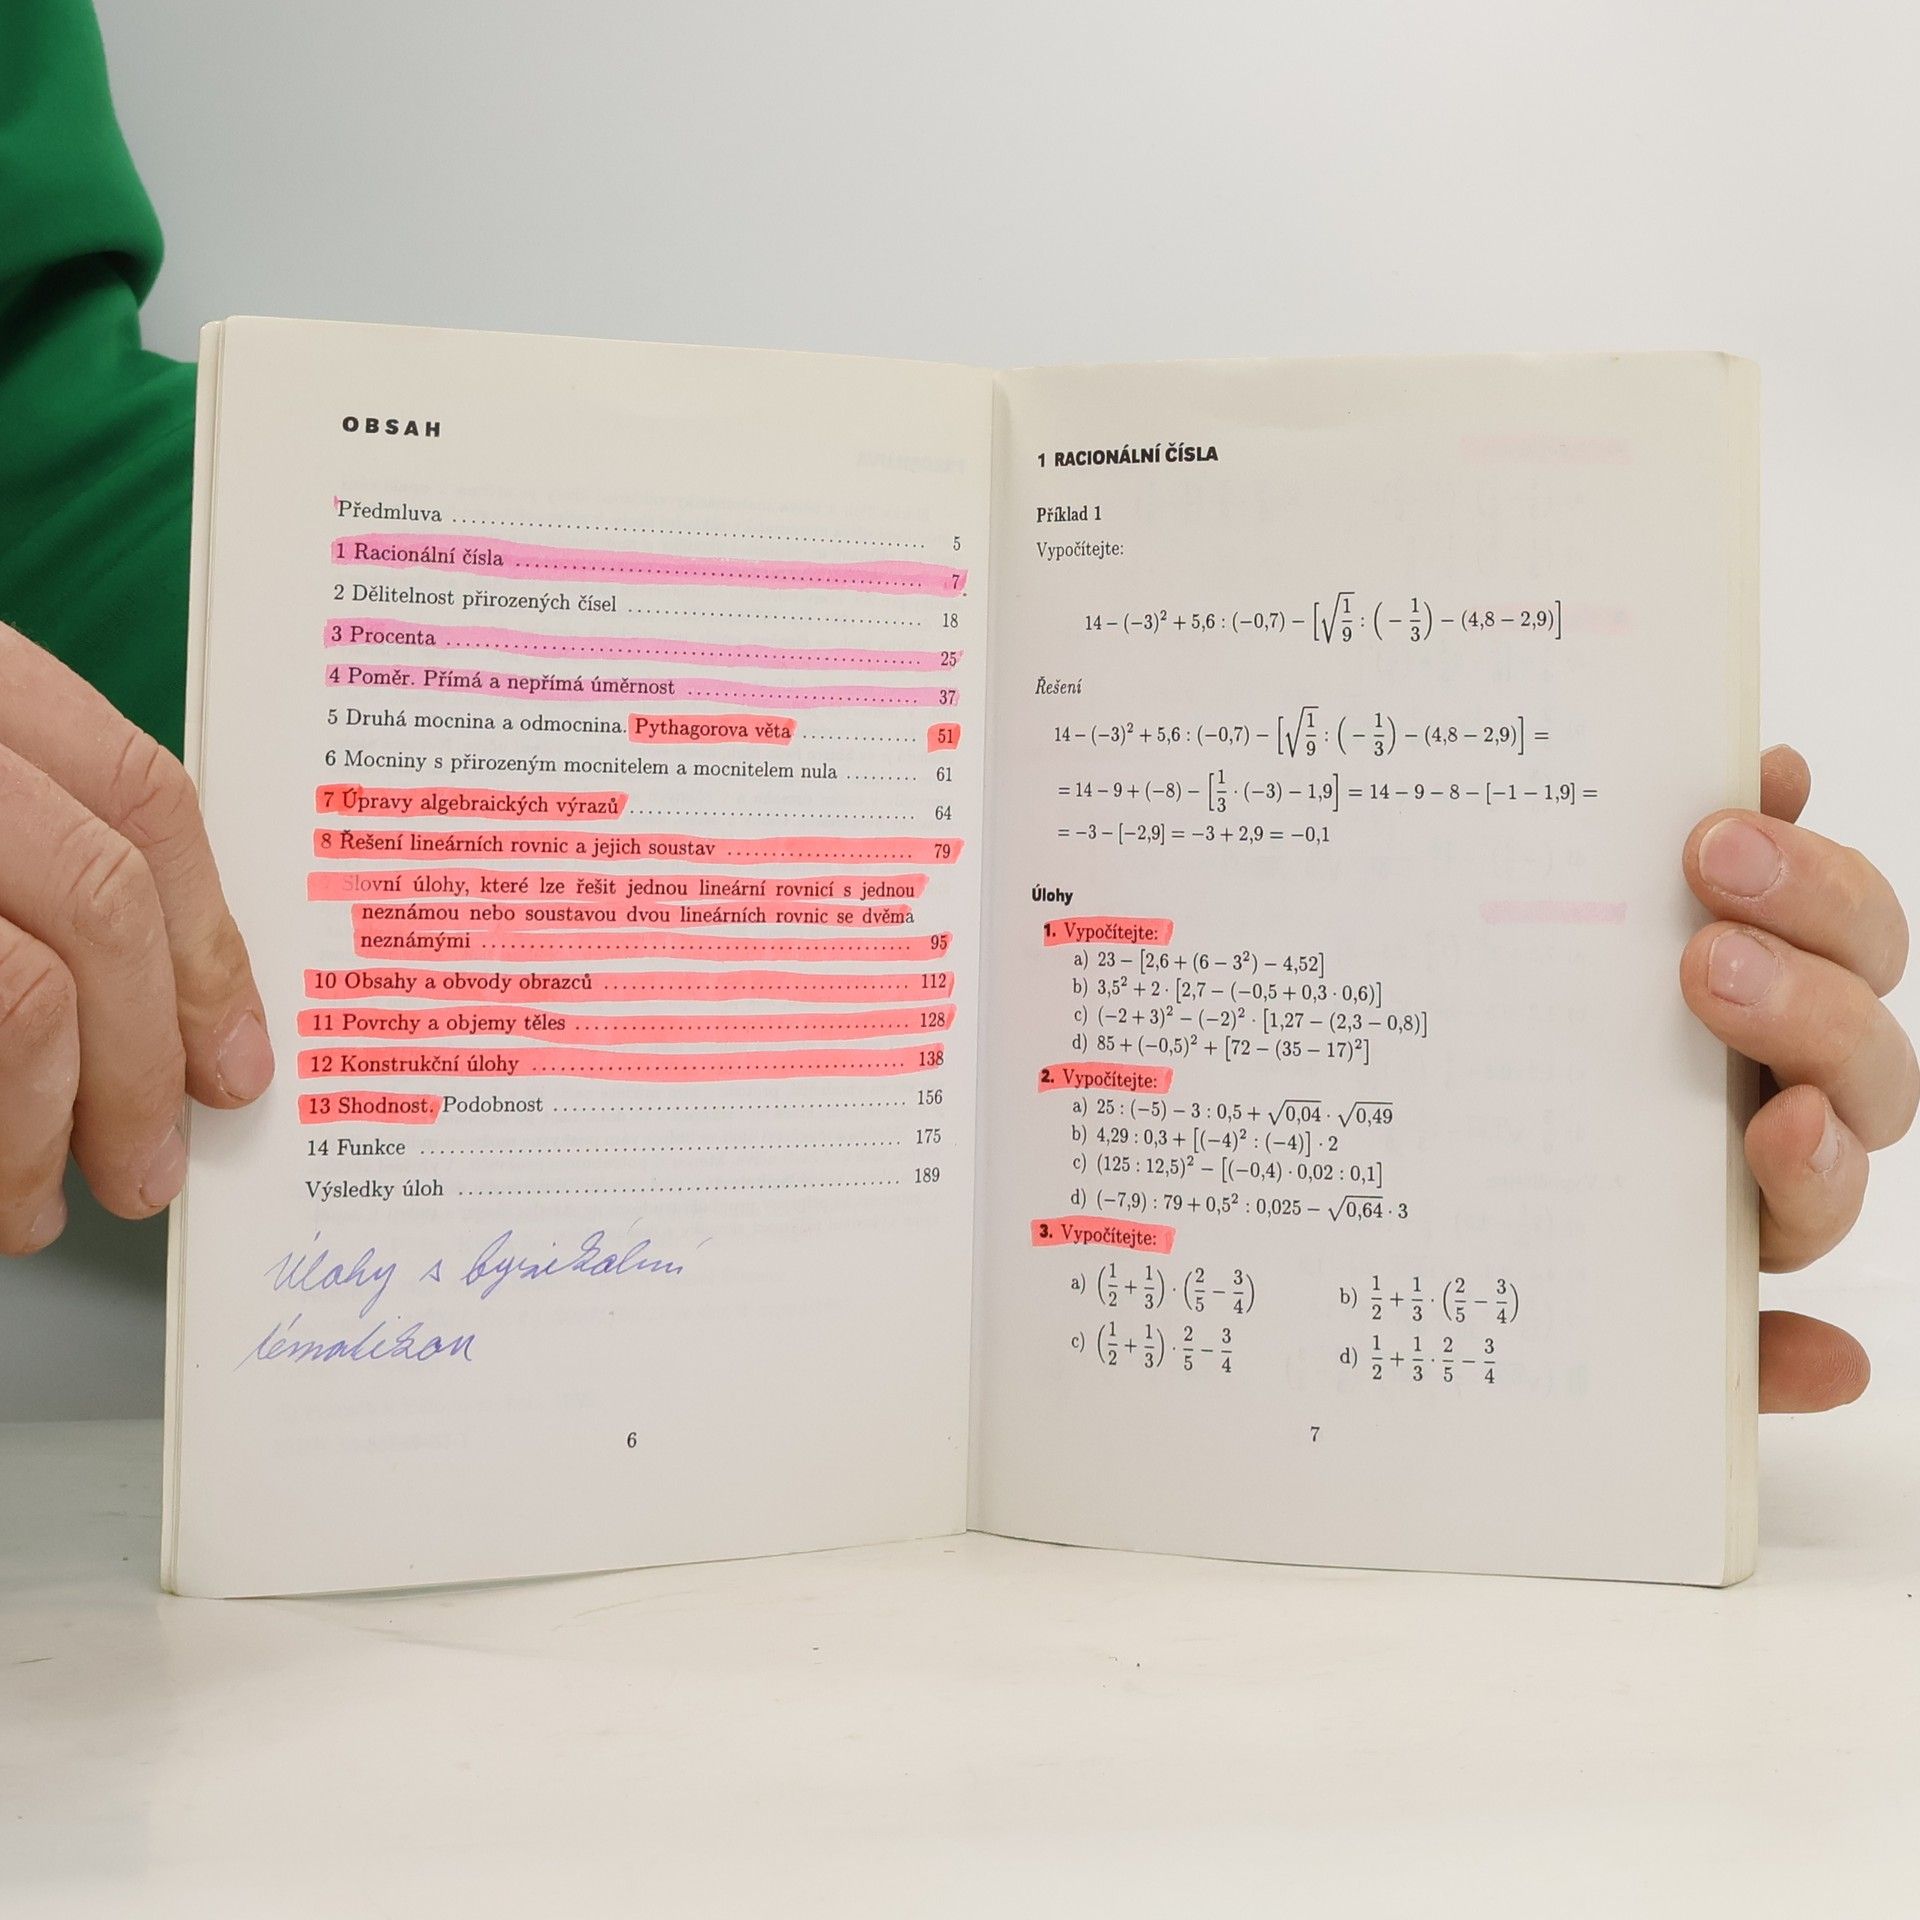 OBSAH
Předmluva ........ 5
1 Racionální čísla ........ 7
2 Dělitelnost přirozených čísel ........ 18
3 Procenta ........ 25
4 Poměr. Přímá a nepřímá úměrnost ........ 37
5 Druhá mocnina a odmocnina. Pythagorova věta ........ 51
6 Mocniny s přirozeným mocnitelem a mocnitelem nula ........ 61
7 Úpravy algebraických výrazů ........ 64
8 Řešení lineárních rovnic a jejich soustav ........ 79
Slovní úlohy, které lze řešit jednou lineární rovnicí s jednou
neznámou nebo soustavou dvou lineárních rovnic se dvěma
neznámými ........ 95
10 Obsahy a obvody obrazců ........ 112
11 Povrchy a objemy těles ........ 128
12 Konstrukční úlohy ........ 138
13 Shodnost. Podobnost ........ 156
14 Funkce ........ 175
Výsledky úloh ........ 189
Úlohy s fyzikální
tématikou
6
1 RACIONÁLNÍ ČÍSLA
Příklad 1
Vypočítejte:
14 − (−3)² + 5,6 : (−0,7) − [√(1/9) : (−1/3) − (4,8 − 2,9)]
Řešení
14 − (−3)² + 5,6 : (−0,7) − [√(1/9) : (−1/3) − (4,8 − 2,9)] =
= 14 − 9 + (−8) − [1/3 · (−3) − 1,9] = 14 − 9 − 8 − [−1 − 1,9] =
= −3 − [−2,9] = −3 + 2,9 = −0,1
Úlohy
1. Vypočítejte:
a) 23 − [2,6 + (6 − 3²) − 4,52]
b) 3,5² + 2 · [2,7 − (−0,5 + 0,3 · 0,6)]
c) (−2 + 3)² − (−2)² · [1,27 − (2,3 − 0,8)]
d) 85 + (−0,5)² + [72 − (35 − 17)²]
2. Vypočítejte:
a) 25 : (−5) − 3 : 0,5 + √0,04 · √0,49
b) 4,29 : 0,3 + [(−4)² : (−4)] · 2
c) (125 : 12,5)² − [(−0,4) · 0,02 : 0,1]
d) (−7,9) : 79 + 0,5² : 0,025 − √0,64 · 3
3. Vypočítejte:
a) (1/2 + 1/3) · (2/5 − 3/4) b) 1/2 + 1/3 · (2/5 − 3/4)
c) (1/2 + 1/3) · 2/5 − 3/4 d) 1/2 + 1/3 · 2/5 − 3/4
7